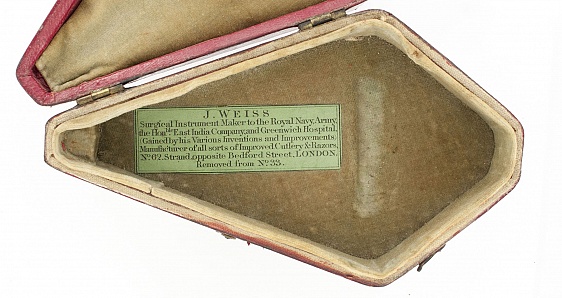 J. WEISS
Surgical Instrument Maker to the Royal Navy, Army,
the Honble East India Company, and Greenwich Hospital,
Gained by his Various Inventions and Improvements.
Manufacturer of all sorts of Improved Cutlery & Razors,
No. 62. Strand, opposite Bedford Street, LONDON.
Removed from No. 33.